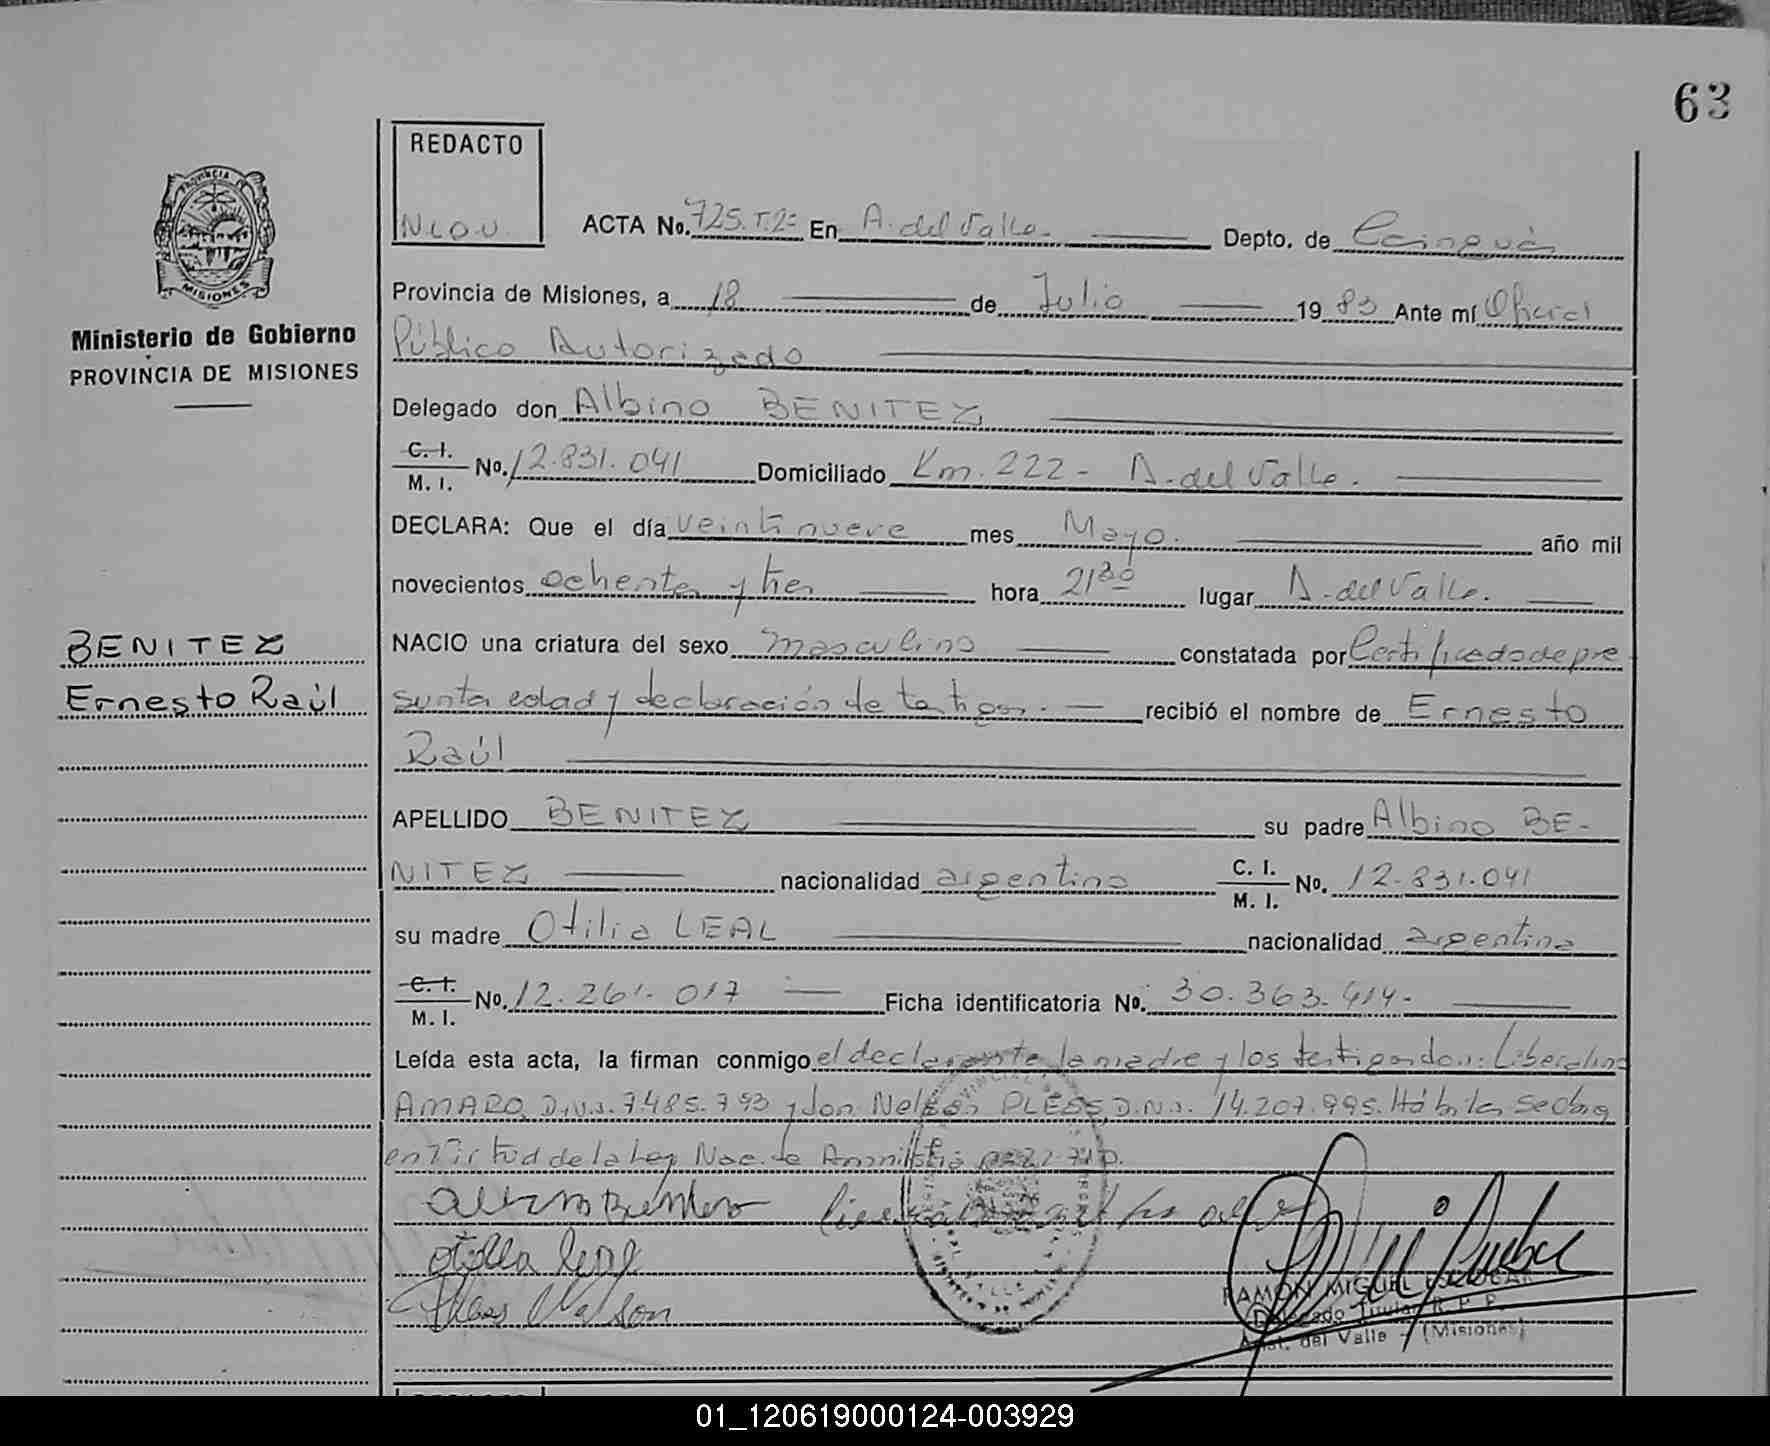 63
REDACTO
PROVINCIA DE
MISIONES
ACTA No. 725.T.2º En A. del Valle. Depto. de Cainguás
Provincia de Misiones, a 18 de Julio 1983 Ante mí Oficial
Ministerio de Gobierno
PROVINCIA DE MISIONES
Público Autorizado
Delegado don Albino BENITEZ
C. I.
M. I. No. 12.831.041 Domiciliado Km. 222 - A. del Valle.
DECLARA: Que el día veintinueve mes Mayo. año mil
novecientos ochenta y tres hora 21³⁰ lugar A. del Valle.
BENITEZ
Ernesto Raúl
NACIO una criatura del sexo masculino constatada por Certificado de pre
sunta edad y declaración de testigos. recibió el nombre de Ernesto
Raúl
APELLIDO BENITEZ su padre Albino BE-
NITEZ nacionalidad argentino C. I.
M. I. No. 12.831.041
su madre Otilia LEAL nacionalidad argentina
C. I.
M. I. No. 12.261.017 Ficha identificatoria No. 30.363.414.
Leída esta acta, la firman conmigo el declarante, la madre y los testigos don: Liberalino
AMARO, D.N.I. 7.485.793 y don Nelson PLESS, D.N.I. 14.207.995. Hábiles se labra
en virtud de la Ley Nac. de Amnistía
otilia leal
RAMON MIGUEL ESCOBAR
Delegado Titular R. P. P.
Arist. del Valle - (Misiones)
01_120619000124-003929